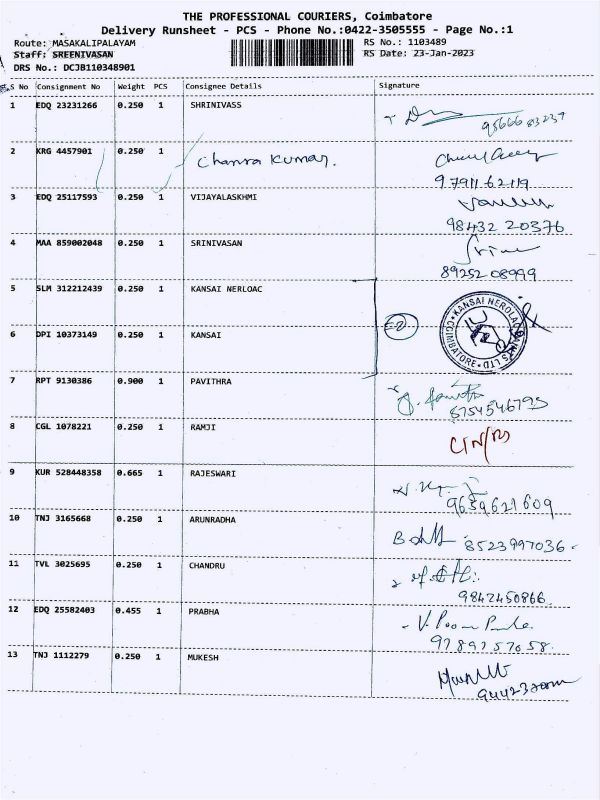 THE PROFESSIONAL COURIERS, Coimbatore
Delivery Runsheet - PCS - Phone No.:0422-3505555 - Page No.:1
Route: MASAKALIPALAYAM RS No.: 1103489
Staff: SREENIVASAN RS Date: 23-Jan-2023
DRS No.: DCJB110348901
S No Consignment No Weight PCS Consignee Details Signature
1 EDQ 23231266 0.250 1 SHRINIVASS
9566683237
2 KRG 4457901 0.250 1 Chansa Kumar.
9791162119
3 EDQ 25117593 0.250 1 VIJAYALASKHMI
98432 20376
4 MAA 859002048 0.250 1 SRINIVASAN
89252 08999
5 SLM 312212439 0.250 1 KANSAI NERLOAC
KANSAI NEROLAC PAINTS LTD COIMBATORE
6 DPI 10373149 0.250 1 KANSAI
7 RPT 9130386 0.900 1 PAVITHRA
8754546795
8 CGL 1078221 0.250 1 RAMJI
9 KUR 528448358 0.665 1 RAJESWARI
9659621609
10 TNJ 3165668 0.250 1 ARUNRADHA
8523997036
11 TVL 3025695 0.250 1 CHANDRU
9842450866
12 EDQ 25582403 0.455 1 PRABHA
9789757058
13 TNJ 1112279 0.250 1 MUKESH